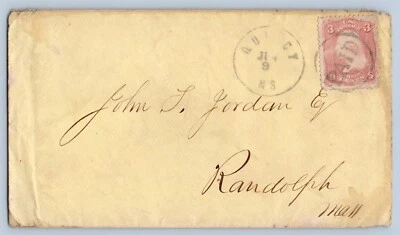 QUINCY
JUN
9
MS
3 3
PAID
John T. Jordan Eq
Randolph
Mass